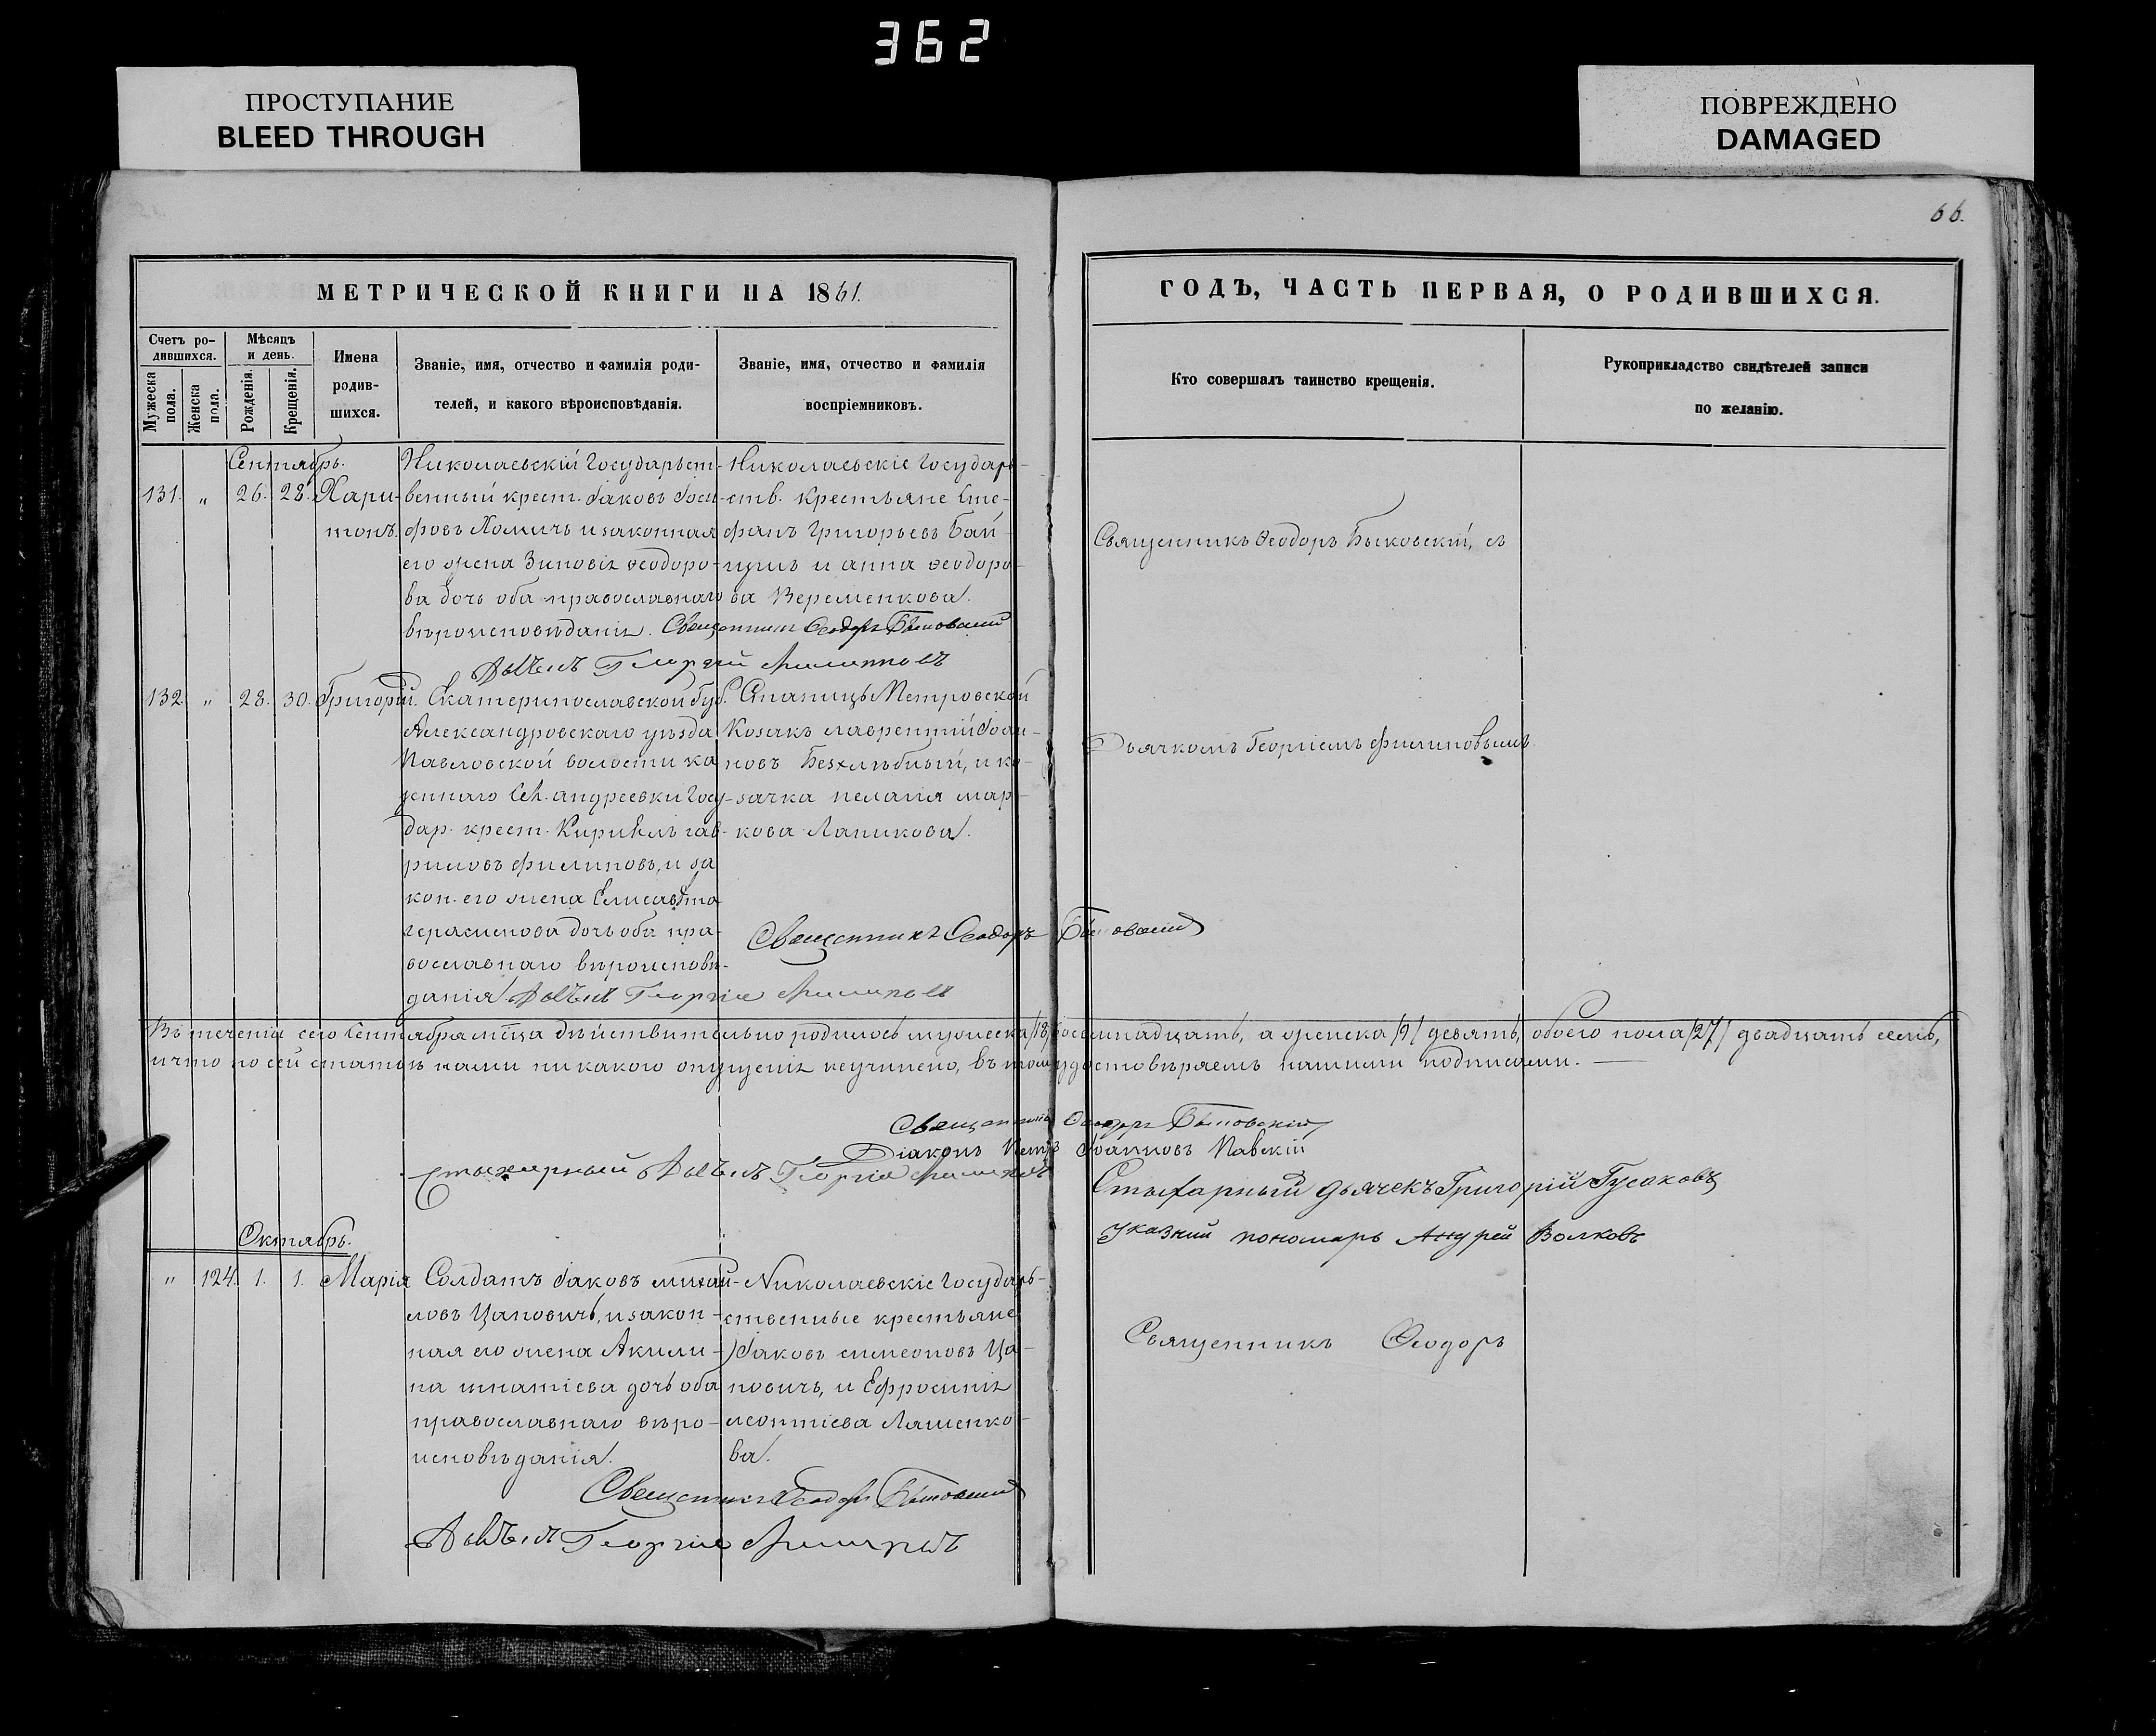 362
ПРОСТУПАНИЕ
BLEED THROUGH
ПОВРЕЖДЕНО
DAMAGED
66.
МЕТРИЧЕСКОЙ КНИГИ НА 1861.
ГОДЪ, ЧАСТЬ ПЕРВАЯ, О РОДИВШИХСЯ.
Счетъ ро-
дившихся.
Мужеска пола.
Женска пола.
Мѣсяцъ
и день.
Рожденія.
Крещенія.
Имена
родив-
шихся.
Званіе, имя, отчество и фамилія роди-
телей, и какого вѣроисповѣданія.
Званіе, имя, отчество и фамилія
воспріемниковъ.
Кто совершалъ таинство крещенія.
Рукоприкладство свидѣтелей записи
по желанію.
Сентябрь.
131. „ 26. 28. Хари-
тонъ.
Николаевскій Государьст-
венный крест. Іаковъ Іоси-
фовъ Хомичъ и законная
его жена Зиновія Ѳеодоро-
ва дочь оба православнаго
вѣроисповѣданія.
Николаевскіе Государь-
ств. крестьяне Сте-
фанъ Григорьевъ Бай-
гушъ и анна Ѳеодоро-
ва Веременкова.
Священникъ Ѳеодоръ Быковскій, съ
Священникъ Ѳеодоръ Быковскій
Дьячекъ Георгій Филиповъ
132. „ 28. 30. Григорій.
Екатеринославской Губ.
Александровскаго уѣзда
Павловской волости ка
зеннаго Сел. андреевки Госу-
дар. крест. Кириллъ гав-
риловъ филиповъ, и за
кон. его жена Елисавета
герасимова дочь оба пра-
вославнаго вѣроисповѣ-
данія.
Станицы Петровской
Козакъ лаврентій Іоан-
новъ Безхлѣбный, и ко-
зачка пелагія мар-
кова Лапикова.
Дьячкомъ Георгіемъ Филиповымъ.
Священникъ Ѳеодоръ Быковскій
Дьячекъ Георгій Филиповъ
Въ теченіи сего Сентября мѣсца дѣйствительно родилось мужеска /18/ восемнадцать, а женска /9/ девять, обоего пола /27/ двадцать семь,
и что по сей статьѣ нами никакого опущенія неучинено, въ томъ удостовѣряемъ нашими подписами. —
Священникъ Ѳеодоръ Быковскій
Діаконъ Петръ Іоанновъ Павскій
Стихарный Дьячекъ Георгій Филиповъ
Стихарный дьячекъ Григорій Гусаковъ
Указный пономарь Андрей Волковъ
Октябрь.
„ 124. 1. 1. Марія
Солдатъ Іаковъ михай-
ловъ Цаповичъ, и закон-
ная его жена Акили-
на игнатіева дочь оба
православнаго вѣро-
исповѣданія.
Николаевскіе Государь-
ственные крестьяне
Іаковъ симеоновъ Ца-
повичъ, и Ефросинія
леонтіева Ляшенко-
ва.
Священникъ Ѳеодоръ
Священникъ Ѳеодоръ Быковскій
Дьячекъ Георгій Филиповъ